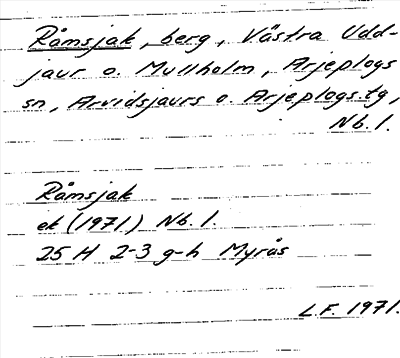 Råmsjak, berg, Västra Udd-
jaur o. Mullholm, Arjeplogs
sn, Arvidsjaurs o. Arjeplogs tg,
Nb. l.
Råmsjak
ek (1971) Nb. l.
25 H 2-3 g-h Myrås
L.F. 1971.